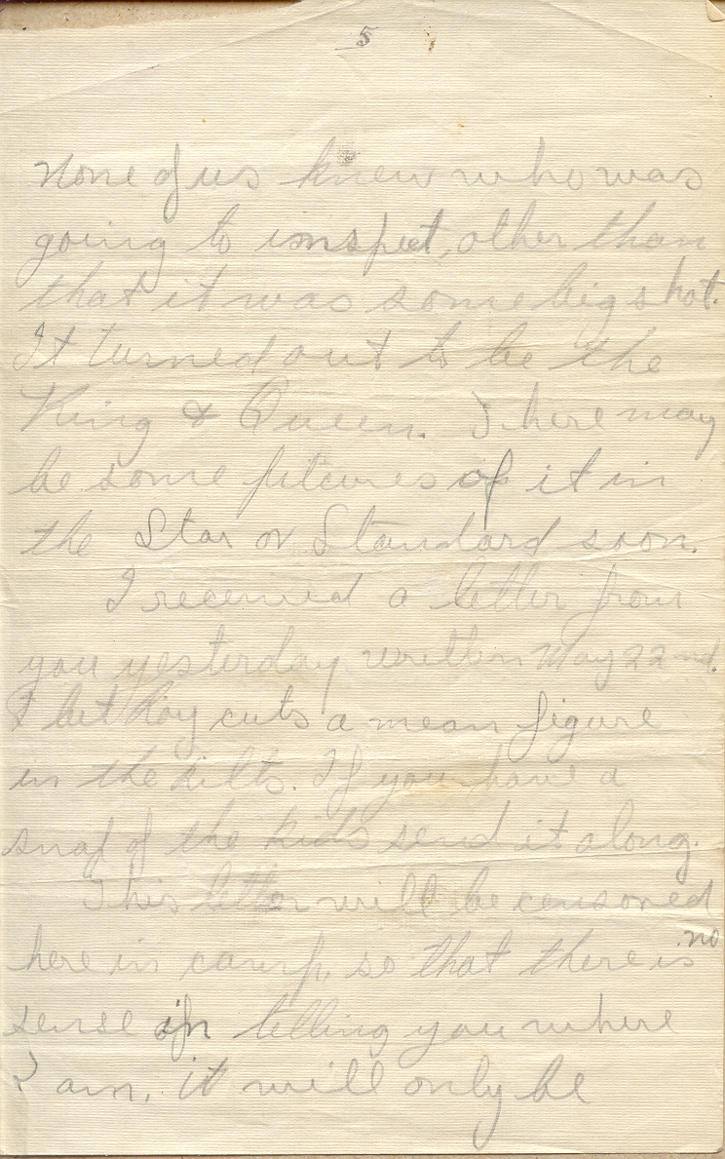 5
None of us knew who was
going to inspect, other than
that it was some big shot.
It turned out to be the
King & Queen. There may
be some pitcures of it in
the Star or Standard soon.
I received a letter from
you yesterday written May 22nd.
I bet Roy cuts a mean figure
in the kilts. If you have a
snap of the kids send it along.
This letter will be censored
here in camp, so that there is no
sense in telling you where
I am, it will only be